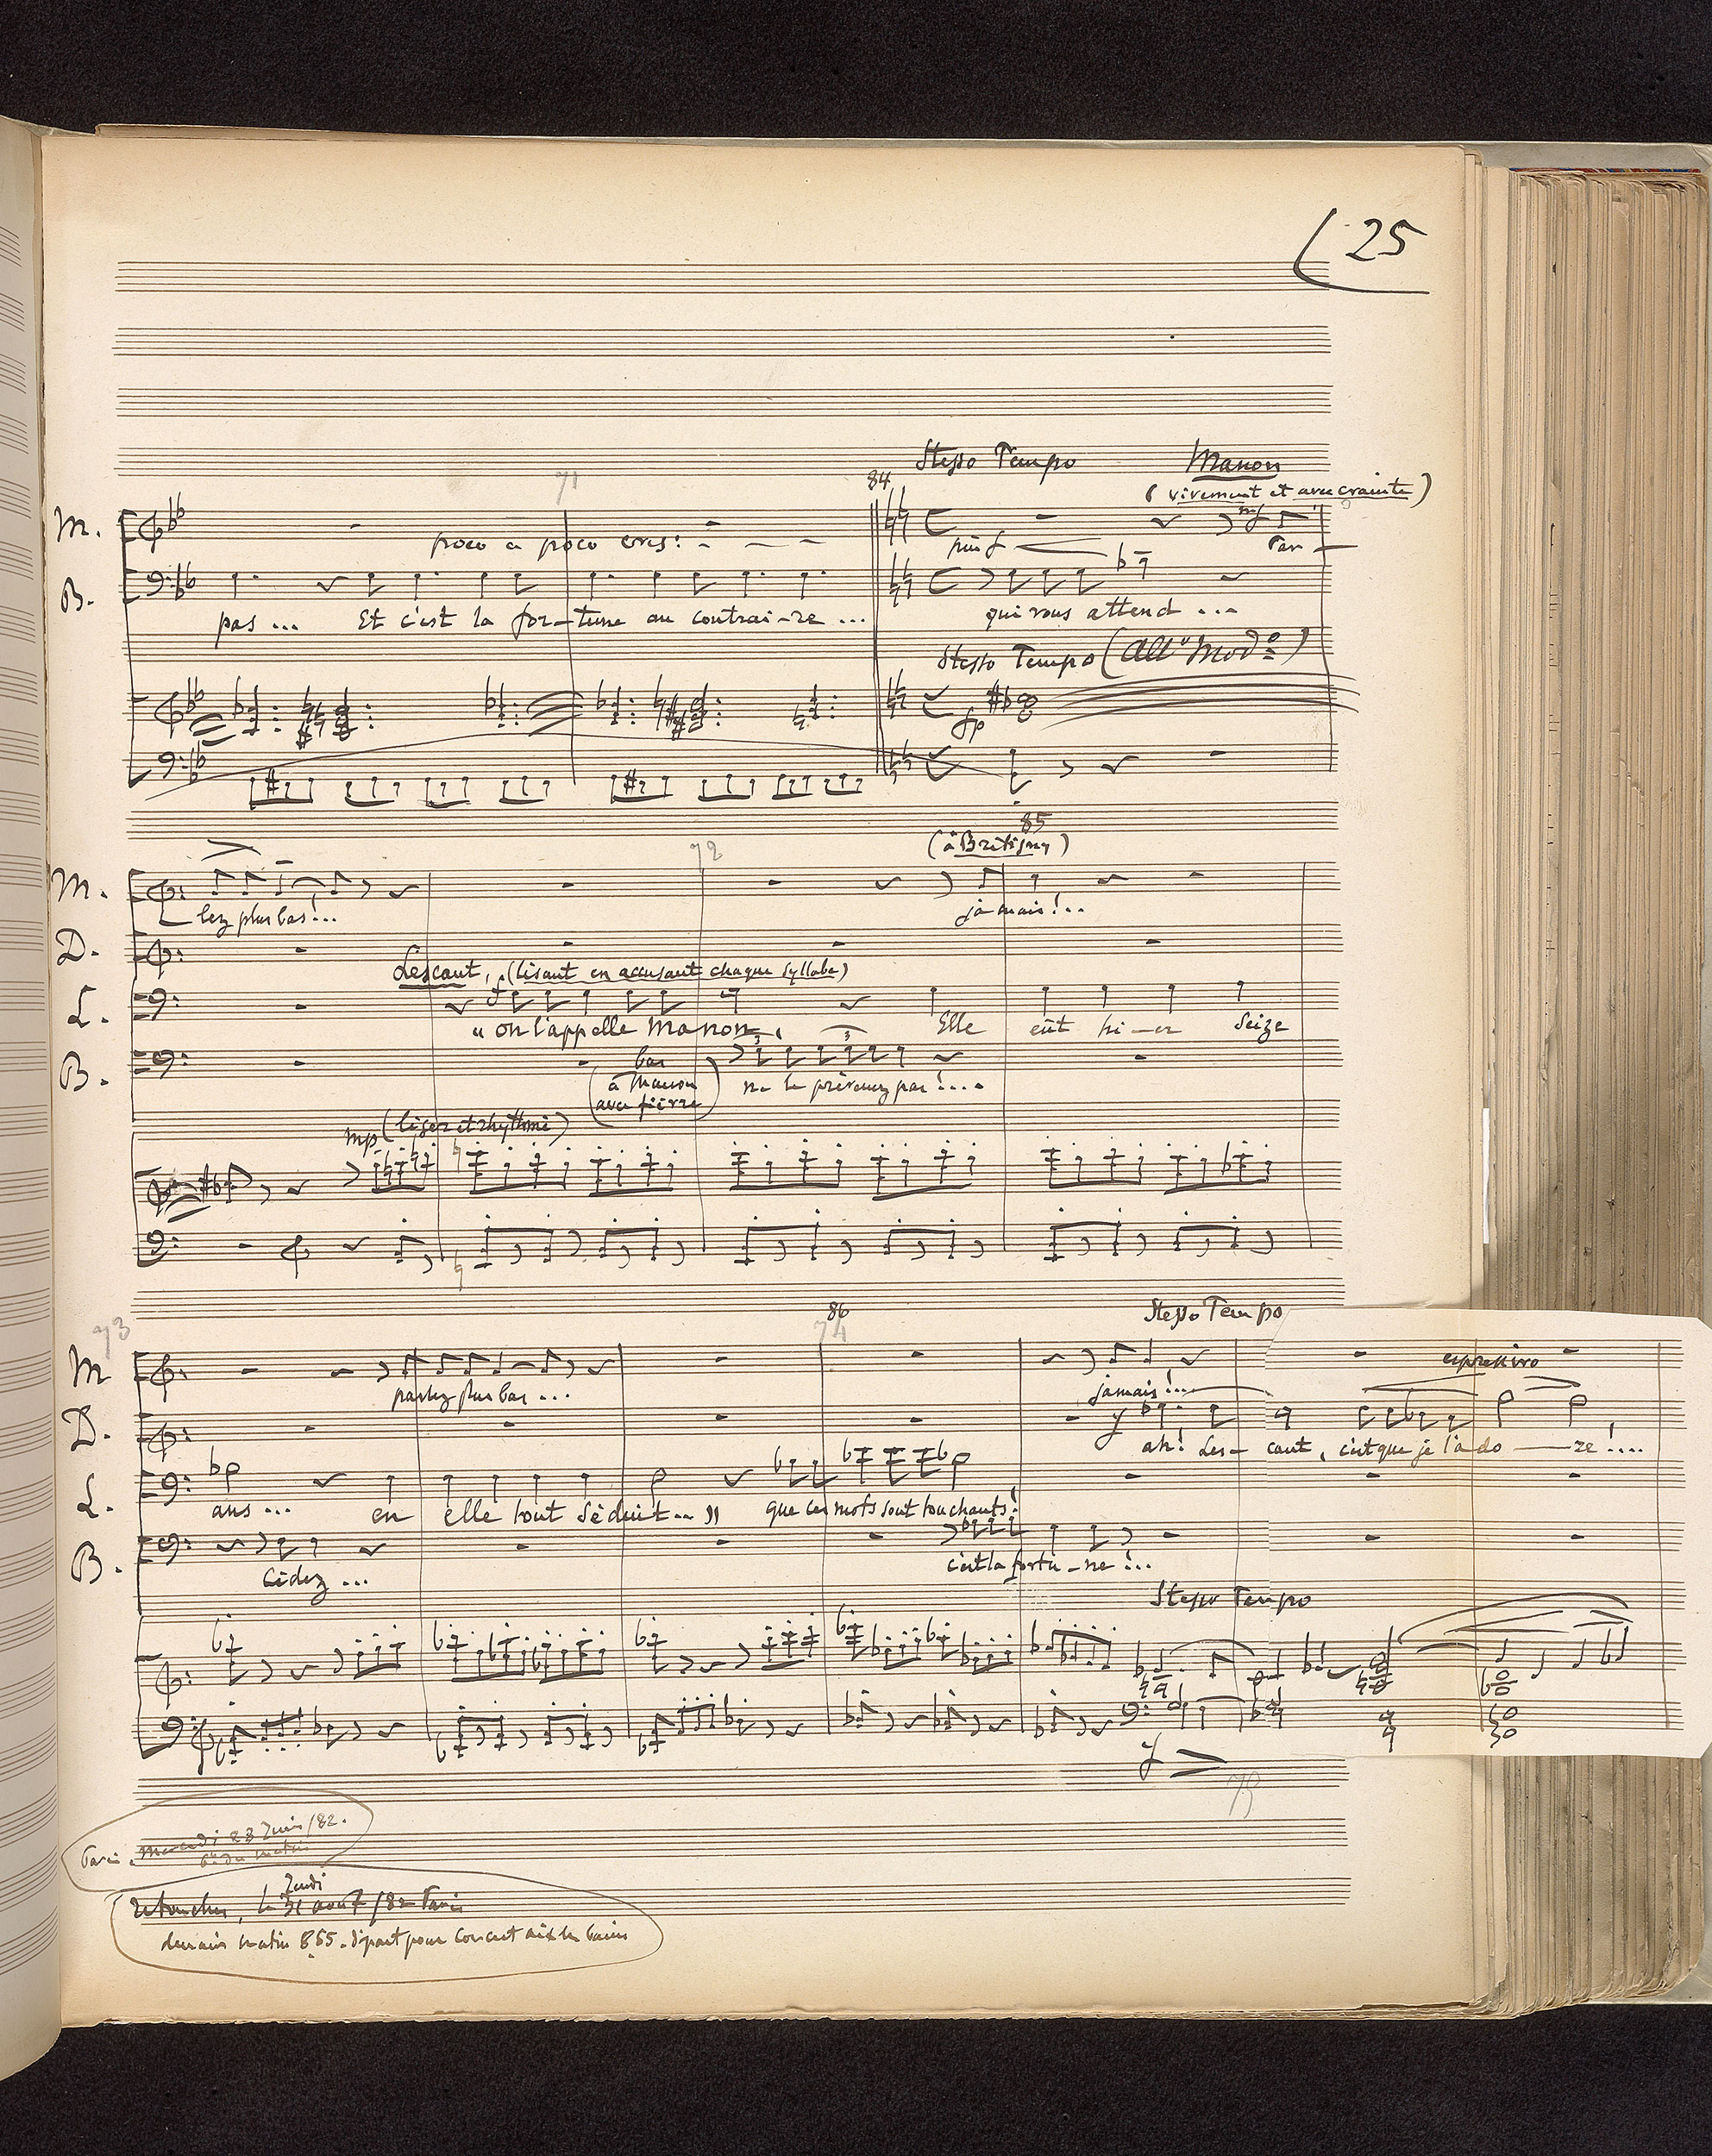 25
71
84
Stesso Tempo
Manon
(vivement et avec crainte)
M.
poco a poco cresc:
più f
mf
Par-
B.
pas... Et c'est la for-tune au contrai-re... qui vous attend...
Stesso Tempo (Allº Modº)
fp
85
72
(à Brétigny)
M.
lez plus bas!... jamais!..
D.
Lescaut, (lisant en accusant chaque syllabe)
L.
f
"on l'appelle Manon, Elle eût hi-er Seize
B.
bas
(à Manon
avec fièvre)
3 3
ne le prévenez pas!....
mp (léger et rhythmé)
73
86
74
Stesso Tempo
M
parlez plus bas... jamais!...
espressivo
D.
f
ah! Les-caut, c'est que je l'ado-re!....
L.
ans... en elle tout séduit..." que ces mots sont touchants!
B.
Cédez... c'est la fortu-ne!...
Stesso Tempo
f
75
Paris. Mercredi 28 Juin/82.
Jeudi
retouches, le 31 août/82 Paris
demain matin 8.55. départ pour Concert Aix les Bains